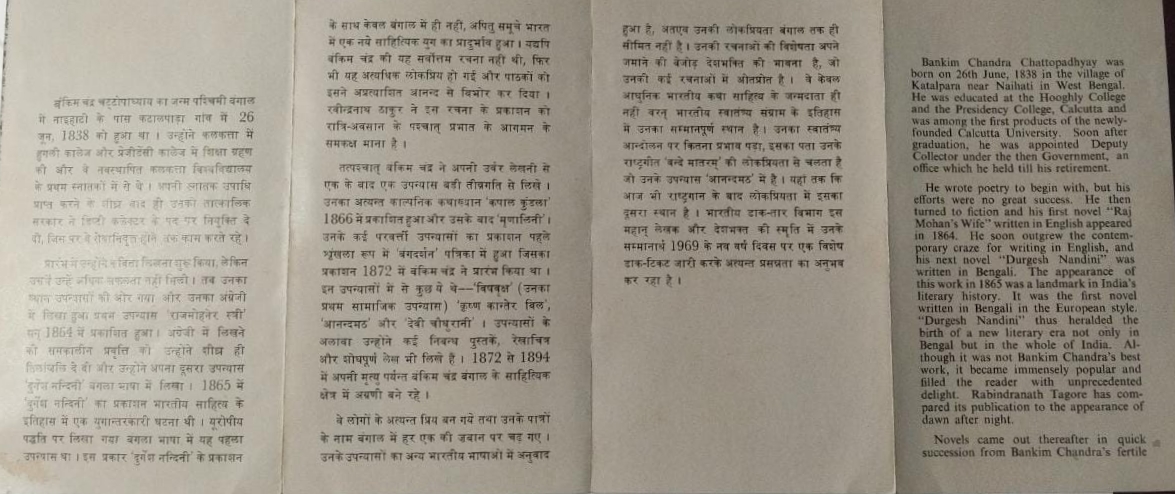 बंकिम चंद्र चट्टोपाध्याय का जन्म पश्चिमी बंगाल
में नाइहाटी के पास कटालपाड़ा गांव में 26
जून, 1838 को हुआ था । उन्होंने कलकत्ता में
हुगली कालेज और प्रेजीडेंसी कालेज में शिक्षा ग्रहण
की और वे नवस्थापित कलकत्ता विश्वविद्यालय
के प्रथम स्नातकों में से थे । अपनी स्नातक उपाधि
प्राप्त करने के शीघ्र बाद ही उनको तात्कालिक
सरकार ने डिप्टी कलेक्टर के पद पर नियुक्ति दे
दी, जिस पर वे सेवानिवृत्त होने तक काम करते रहे ।
प्रारंभ में उन्होंने कविता लिखना शुरू किया, लेकिन
उसमें उन्हें अधिक सफलता नहीं मिली । तब उनका
ध्यान उपन्यासों की ओर गया और उनका अंग्रेजी
में लिखा हुआ प्रथम उपन्यास 'राजमोहनेर स्त्री'
सन् 1864 में प्रकाशित हुआ । अंग्रेजी में लिखने
की समकालीन प्रवृत्ति को उन्होंने शीघ्र ही
तिलांजलि दे दी और उन्होंने अपना दूसरा उपन्यास
'दुर्गेश नन्दिनी' बंगला भाषा में लिखा । 1865 में
'दुर्गेश नन्दिनी' का प्रकाशन भारतीय साहित्य के
इतिहास में एक युगान्तरकारी घटना थी । यूरोपीय
पद्धति पर लिखा गया बंगला भाषा में यह पहला
उपन्यास था । इस प्रकार 'दुर्गेश नन्दिनी' के प्रकाशन
के साथ केवल बंगाल में ही नहीं, अपितु समूचे भारत
में एक नये साहित्यिक युग का प्रादुर्भाव हुआ । यद्यपि
बंकिम चंद्र की यह सर्वोत्तम रचना नहीं थी, फिर
भी यह अत्यधिक लोकप्रिय हो गई और पाठकों को
इसने अप्रत्याशित आनन्द से विभोर कर दिया ।
रवीन्द्रनाथ ठाकुर ने इस रचना के प्रकाशन को
रात्रि-अवसान के पश्चात् प्रभात के आगमन के
समकक्ष माना है ।
तत्पश्चात् बंकिम चंद्र ने अपनी उर्वर लेखनी से
एक के बाद एक उपन्यास बड़ी तीव्रगति से लिखे ।
उनका अत्यन्त काल्पनिक कथाख्यान 'कपाल कुंडला'
1866 में प्रकाशित हुआ और उसके बाद 'मृणालिनी' ।
उनके कई परवर्ती उपन्यासों का प्रकाशन पहले
श्रृंखला रूप में 'बंगदर्शन' पत्रिका में हुआ जिसका
प्रकाशन 1872 में बंकिम चंद्र ने प्रारंभ किया था ।
इन उपन्यासों में से कुछ ये थे—'विषवृक्ष' (उनका
प्रथम सामाजिक उपन्यास) 'कृष्ण कान्तेर विल',
'आनन्दमठ' और 'देवी चौधुरानी' । उपन्यासों के
अलावा उन्होंने कई निबन्ध पुस्तकें, रेखाचित्र
और शोधपूर्ण लेख भी लिखे हैं । 1872 से 1894
में अपनी मृत्यु पर्यन्त बंकिम चंद्र बंगाल के साहित्यिक
क्षेत्र में अग्रणी बने रहे ।
वे लोगों के अत्यन्त प्रिय बन गये तथा उनके पात्रों
के नाम बंगाल में हर एक की जबान पर चढ़ गए ।
उनके उपन्यासों का अन्य भारतीय भाषाओं में अनुवाद
हुआ है, अतएव उनकी लोकप्रियता बंगाल तक ही
सीमित नहीं है । उनकी रचनाओं की विशेषता अपने
जमाने की बेजोड़ देशभक्ति की भावना है, जो
उनकी कई रचनाओं में ओतप्रोत है । वे केवल
आधुनिक भारतीय कथा साहित्य के जन्मदाता ही
नहीं वरन् भारतीय स्वातंत्र्य संग्राम के इतिहास
में उनका सम्मानपूर्ण स्थान है । उनका स्वातंत्र्य
आन्दोलन पर कितना प्रभाव पड़ा, इसका पता उनके
राष्ट्रगीत 'वन्दे मातरम्' की लोकप्रियता से चलता है
जो उनके उपन्यास 'आनन्दमठ' में है । यहां तक कि
आज भी राष्ट्रगान के बाद लोकप्रियता में इसका
दूसरा स्थान है । भारतीय डाक-तार विभाग इस
महान् लेखक और देशभक्त की स्मृति में उनके
सम्मानार्थ 1969 के नव वर्ष दिवस पर एक विशेष
डाक-टिकट जारी करके अत्यन्त प्रसन्नता का अनुभव
कर रहा है ।
Bankim Chandra Chattopadhyay was
born on 26th June, 1838 in the village of
Katalpara near Naihati in West Bengal.
He was educated at the Hooghly College
and the Presidency College, Calcutta and
was among the first products of the newly-
founded Calcutta University. Soon after
graduation, he was appointed Deputy
Collector under the then Government, an
office which he held till his retirement.
He wrote poetry to begin with, but his
efforts were no great success. He then
turned to fiction and his first novel "Raj
Mohan's Wife" written in English appeared
in 1864. He soon outgrew the contem-
porary craze for writing in English, and
his next novel "Durgesh Nandini" was
written in Bengali. The appearance of
this work in 1865 was a landmark in India's
literary history. It was the first novel
written in Bengali in the European style.
"Durgesh Nandini" thus heralded the
birth of a new literary era not only in
Bengal but in the whole of India. Al-
though it was not Bankim Chandra's best
work, it became immensely popular and
filled the reader with unprecedented
delight. Rabindranath Tagore has com-
pared its publication to the appearance of
dawn after night.
Novels came out thereafter in quick
succession from Bankim Chandra's fertile